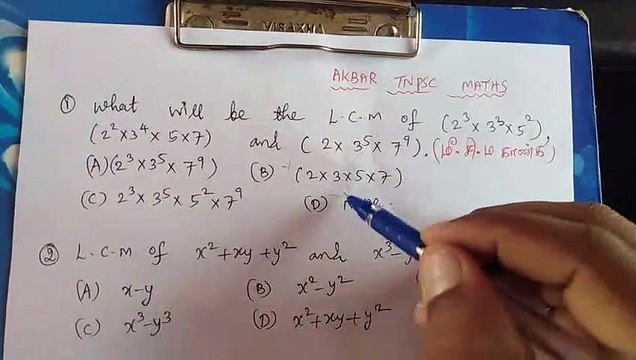 VISAKHA
AKBAR TNPSC MATHS
① what will be the L.C.M of (2³ × 3³ × 5²),
(2² × 3⁴ × 5 × 7) and (2 × 3⁵ × 7⁹). (மீ.சி.ம காண்க)
(A) (2³ × 3⁵ × 7⁹) (B) (2 × 3 × 5 × 7)
(C) 2³ × 3⁵ × 5² × 7⁹ (D)
② L.C.M of x² + xy + y² and x³ - y
(A) x - y (B) x² - y²
(C) x³ - y³ (D) x² + xy + y²